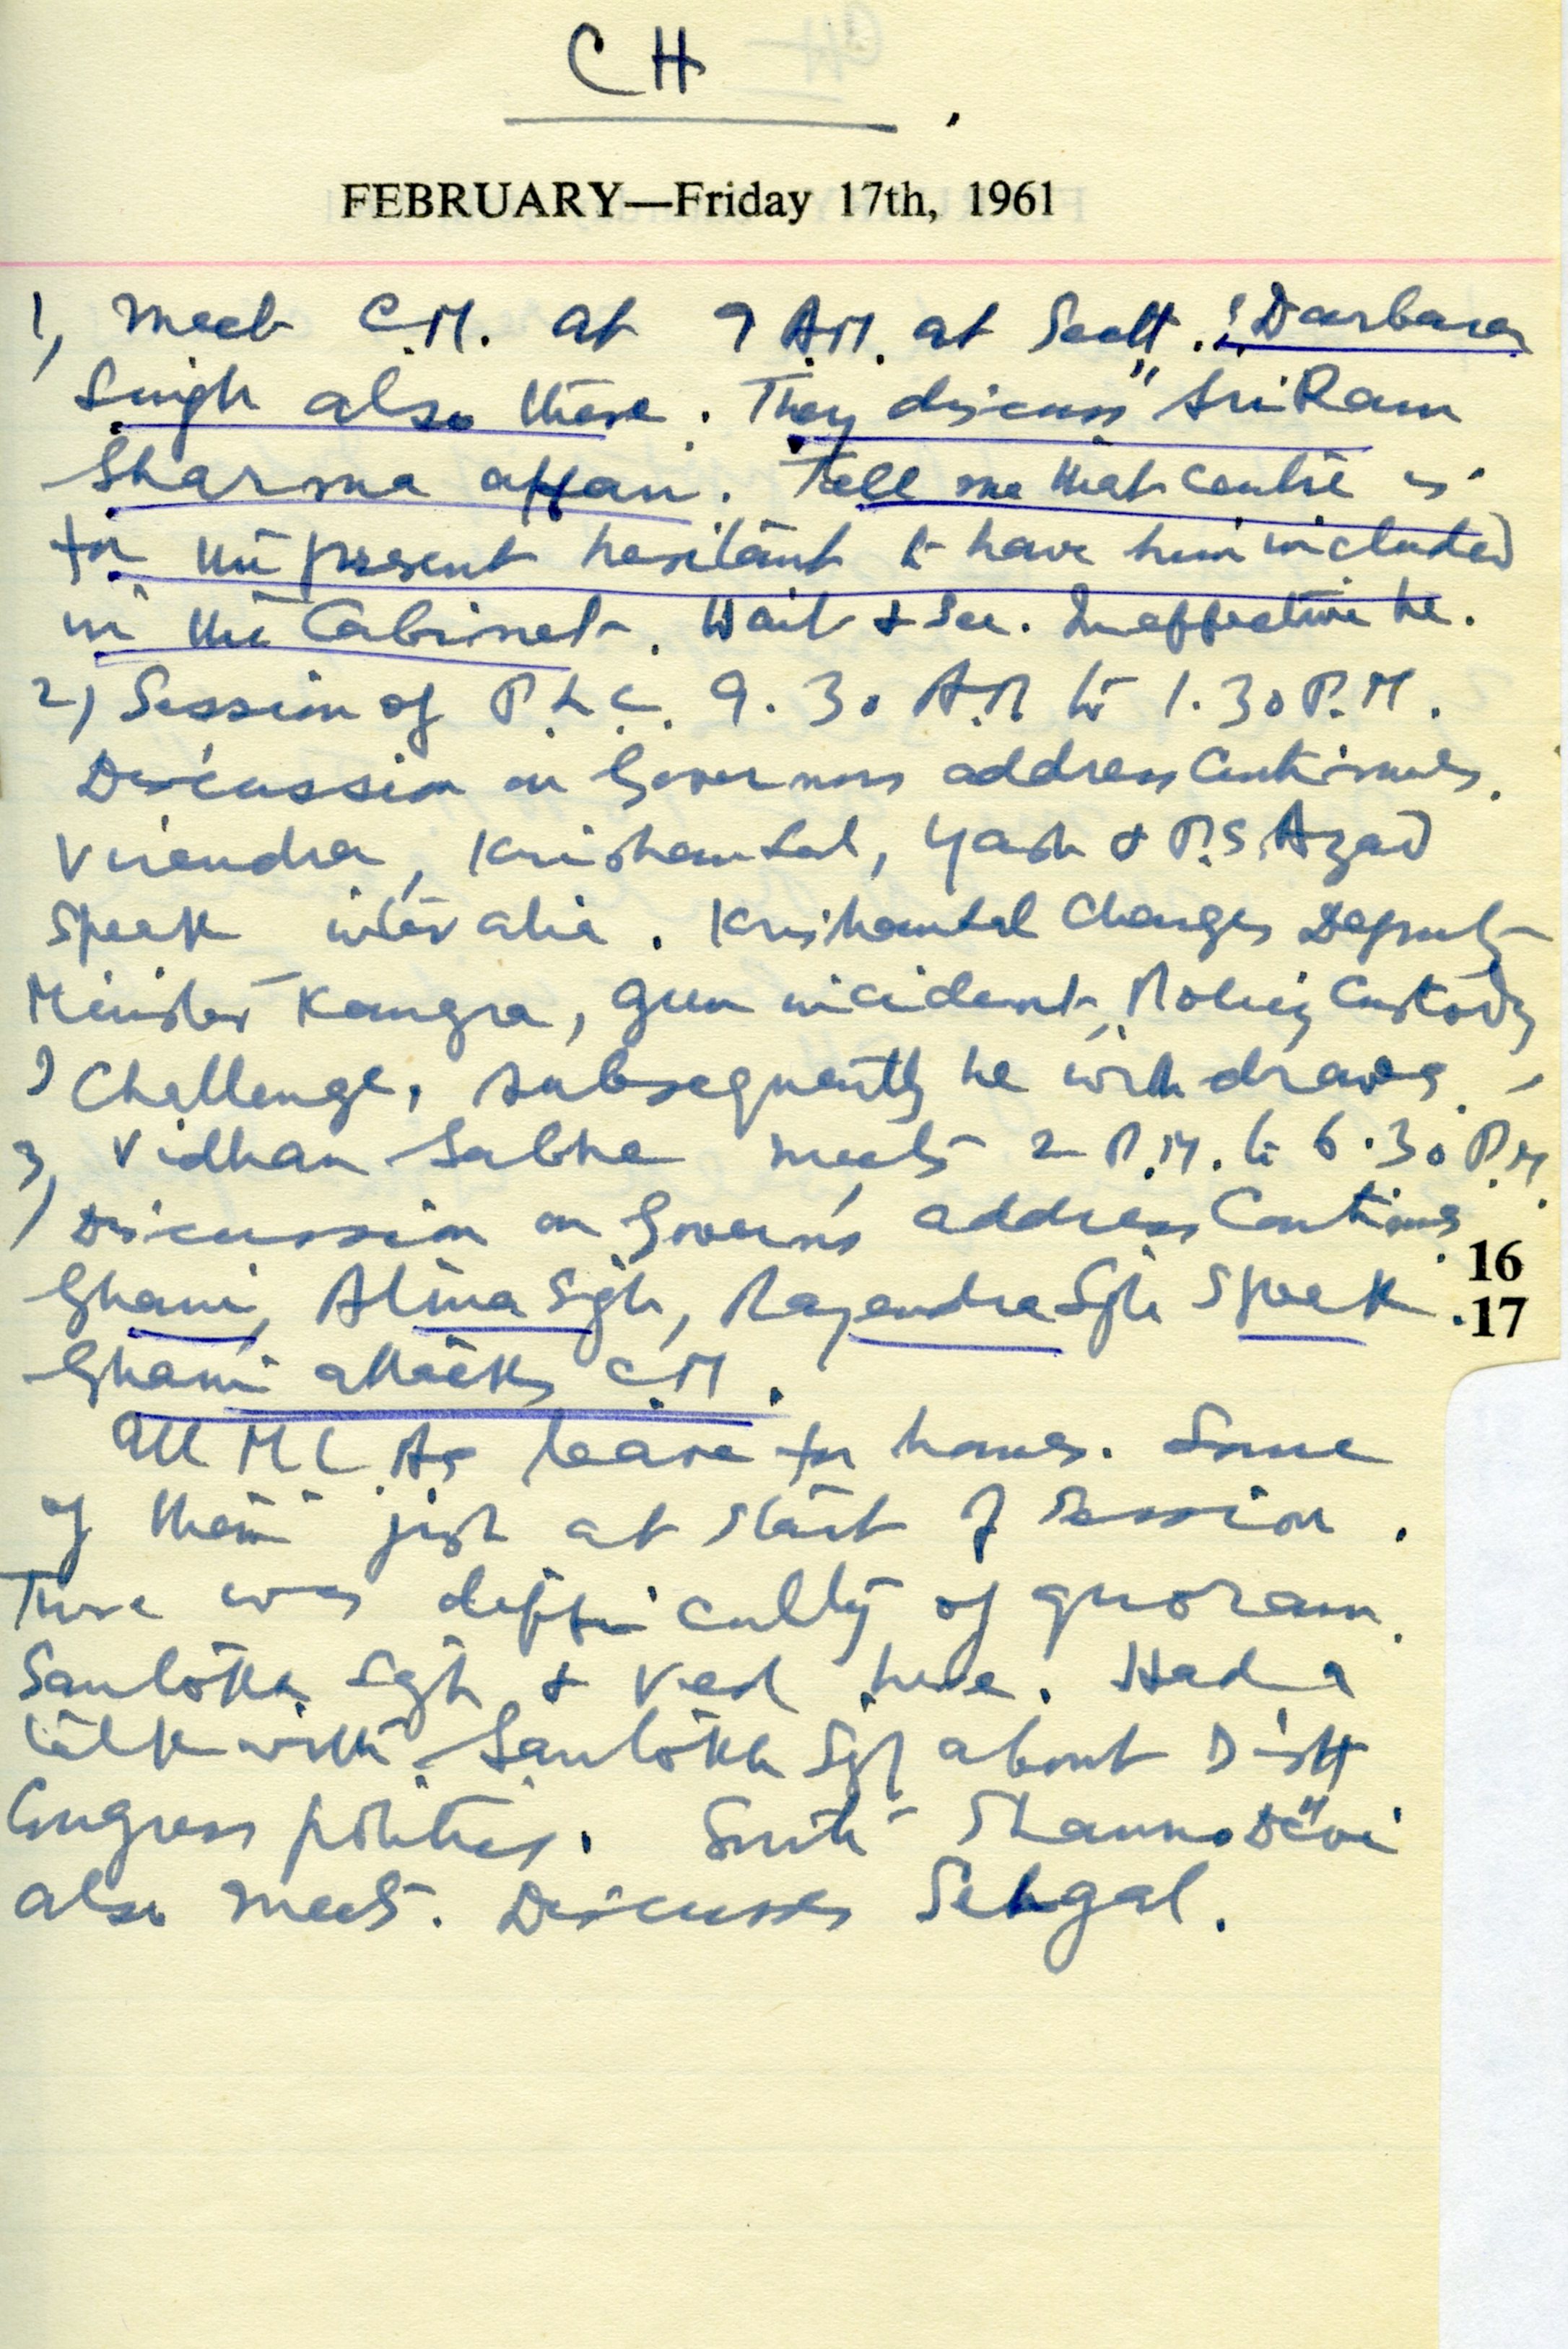 CH
FEBRUARY—Friday 17th, 1961
1) Meet C.M. at 9 A.M. at Sectt. Darbara
Singh also there. They discuss Sri Ram
Sharma affair. Tell me that centre is
for the present hesitant to have him included
in the Cabinet. Wait & See. Ineffective he.
2) Session of P.L.C. 9.30 A.M to 1.30 P.M.
Discussion on Governors address Continues.
Virendra, Krishanlal, Yash & P.S. Azad
speak inter alia. Krishanlal Charges Deputy
Minister Kangra, gun incident, Policy Custody
Challenge, subsequently he withdraws.
3) Vidhan Sabha meets 2 P.M. to 6.30 P.M.
Discussion on Govern's address Continues
16
Ghani, Atma Sgh, Rajendra Sgh Speak.
17
Ghani attacks C.M.
All M L As leave for homes. Some
of them just at start of Session.
There was difficulty of quoram.
Santokh Sgh & Ved here. Had a
talk with Santokh Sgh about Distt
Congress politics. Smt Shanno Devi
also meets. Discusses Sehgal.